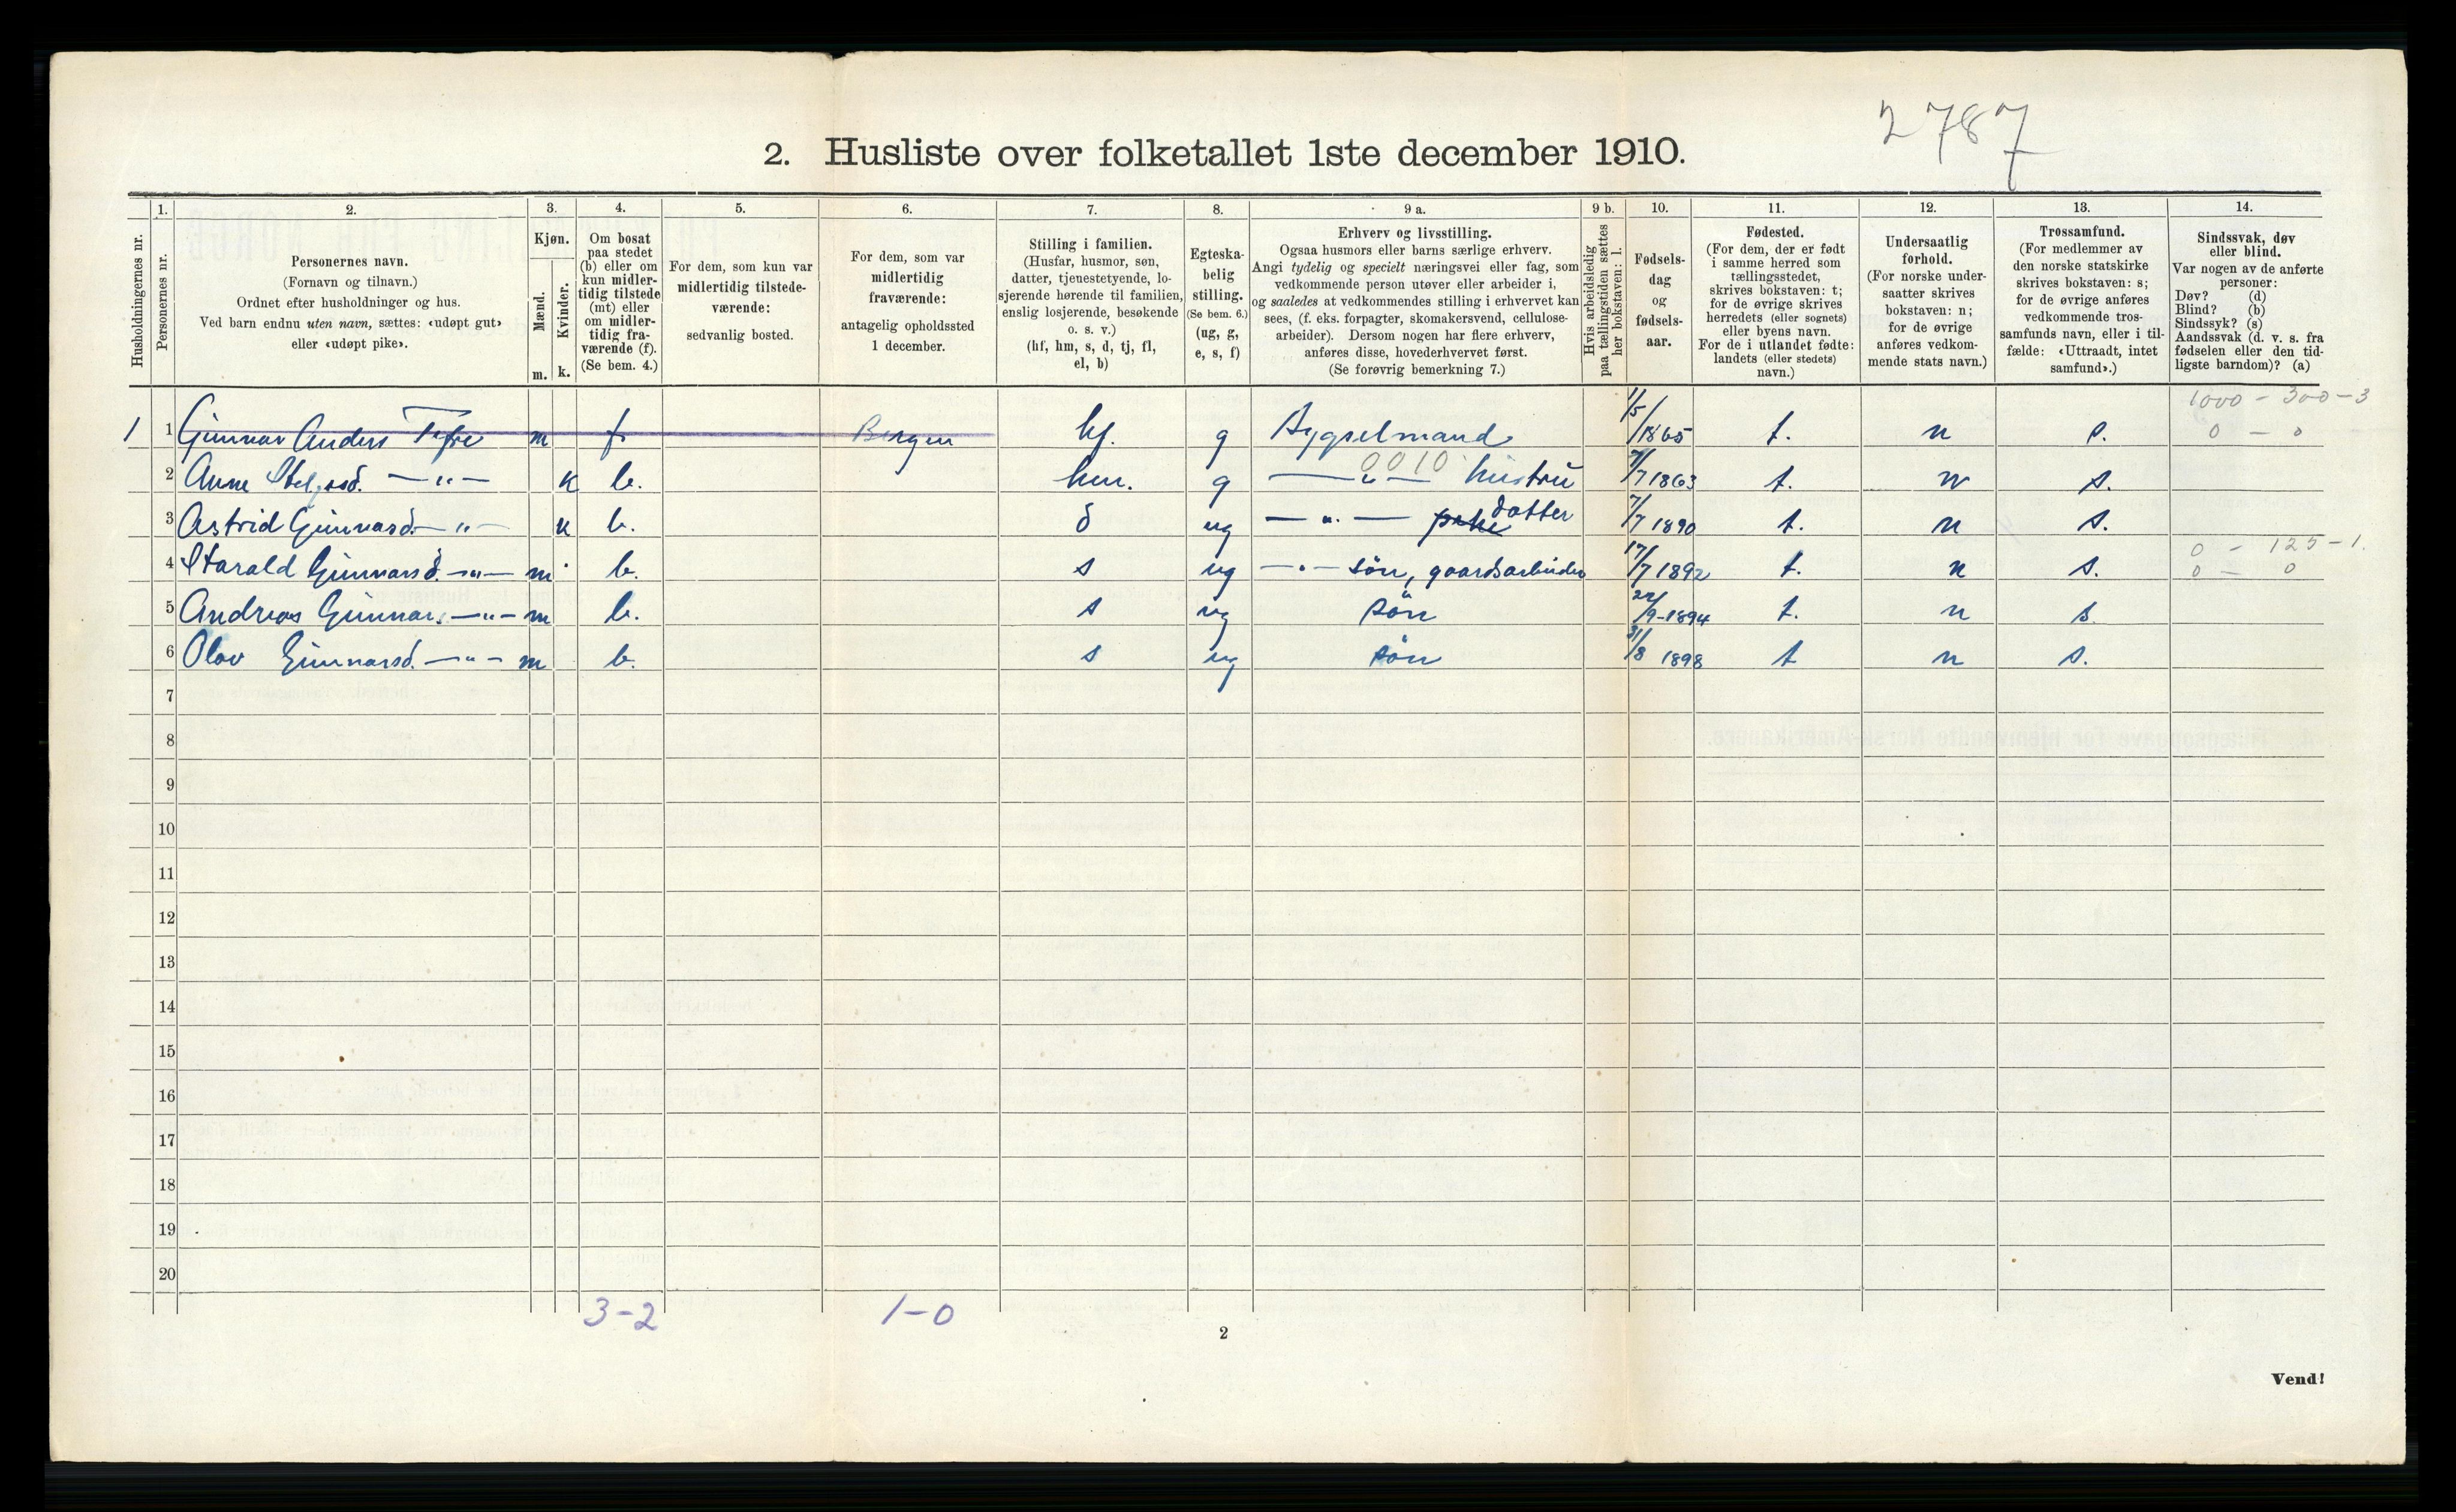 2787
2. Husliste over folketallet 1ste december 1910.
Husholdningernes nr.
1.
Personernes nr.
2.
Personernes navn.
(Fornavn og tilnavn.)
Ordnet efter husholdninger og hus.
Ved barn endnu uten navn, sættes: «udøpt gut»
eller «udøpt pike».
3.
Kjøn.
Mænd.
Kvinder.
m. k.
4.
Om bosat
paa stedet
(b) eller om
kun midler-
tidig tilstede
(mt) eller
om midler-
tidig fra-
værende (f).
(Se bem. 4.)
5.
For dem, som kun var
midlertidig tilstede-
værende:
sedvanlig bosted.
6.
For dem, som var
midlertidig
fraværende:
antagelig opholdssted
1 december.
7.
Stilling i familien.
(Husfar, husmor, søn,
datter, tjenestetyende, lo-
sjerende hørende til familien,
enslig losjerende, besøkende
o. s. v.)
(hf, hm, s, d, tj, fl,
el, b)
8.
Egteska-
belig
stilling.
(Se bem. 6.)
(ug, g,
e, s, f)
9 a.
Erhverv og livsstilling.
Ogsaa husmors eller barns særlige erhverv.
Angi tydelig og specielt næringsvei eller fag, som
vedkommende person utøver eller arbeider i,
og saaledes at vedkommendes stilling i erhvervet kan
sees, (f. eks. forpagter, skomakersvend, cellulose-
arbeider). Dersom nogen har flere erhverv,
anføres disse, hovederhvervet først.
(Se forøvrig bemerkning 7.)
9 b.
Hvis arbeidsledig
paa tællingstiden sættes
her bokstaven: l.
10.
Fødsels-
dag
og
fødsels-
aar.
11.
Fødested.
(For dem, der er født
i samme herred som
tællingsstedet,
skrives bokstaven: t;
for de øvrige skrives
herredets (eller sognets)
eller byens navn.
For de i utlandet fødte:
landets (eller stedets)
navn.)
12.
Undersaatlig
forhold.
(For norske under-
saatter skrives
bokstaven: n;
for de øvrige
anføres vedkom-
mende stats navn.)
13.
Trossamfund.
(For medlemmer av
den norske statskirke
skrives bokstaven: s;
for de øvrige anføres
vedkommende tros-
samfunds navn, eller i til-
fælde: «Uttraadt, intet
samfund».)
14.
Sindssvak, døv
eller blind.
Var nogen av de anførte
personer:
Døv? (d)
Blind? (b)
Sindssyk? (s)
Aandssvak (d. v. s. fra
fødselen eller den tid-
ligste barndom)? (a)
1000 - 300 - 3
1 1 Gunnar Anders m f Bergen hf. g 1/5 1865 t. n s. 0 - 0
0010
2 Anne — " — k b. hm. g — " — hustru 7/7 1863 t. n s.
3 Astrid Gunnarsd. — " — k b. d ug — " — datter 7/7 1890 t. n s.
0 - 125 - 1.
4 Harald Gunnars — " — m b. s ug — " — søn, gaardsarbeider 17/7 1892 t. n s. 0 - 0
5 Andreas Gunnars. — " — m b. s ug søn 22/9-1894 t. n s.
6 Olav Gunnars — " — m b. s ug søn 31/8 1898 t n s.
7
8
9
10
11
12
13
14
15
16
17
18
19
20
3-2 1-0
2
Vend!